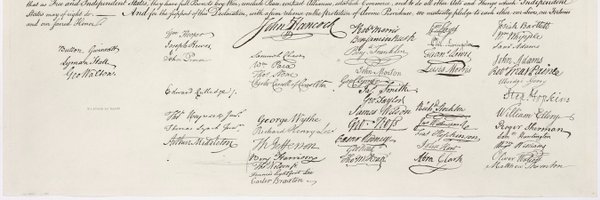 that as Free and Independent States, they have full Power to levy War, conclude Peace, contract Alliances, establish Commerce, and to do all other Acts and Things which Independent
States may of right do. And for the support of this Declaration, with a firm reliance on the protection of divine Providence, we mutually pledge to each other our Lives, our Fortunes
and our sacred Honor.
John Hancock
Button Gwinnett
Lyman Hall
Geo Walton.
Wm Hooper
Joseph Hewes,
John Penn
Edward Rutledge.
Thos Heyward Junr.
Thomas Lynch Junr.
Arthur Middleton
Samuel Chase
Wm Paca
Thos Stone
Charles Carroll of Carrollton
George Wythe
Richard Henry Lee
Th Jefferson
Benj Harrison
Thos Nelson jr.
Francis Lightfoot Lee
Carter Braxton
Robt Morris
Benjamin Rush
Benj. Franklin
John Morton
Geo Clymer
Jas. Smith
Geo. Taylor
James Wilson
Geo. Ross
Caesar Rodney
Geo Read
Tho M:Kean
Wm Floyd
Phil. Livingston
Frans. Lewis
Lewis Morris
Richd. Stockton
Jno Witherspoon
Fras. Hopkinson
John Hart
Abra Clark
Josiah Bartlett
Wm Whipple
Saml Adams
John Adams
Robt Treat Paine
Elbridge Gerry
Step. Hopkins
William Ellery
Roger Sherman
Saml Huntington
Wm Williams
Oliver Wolcott
Matthew Thornton